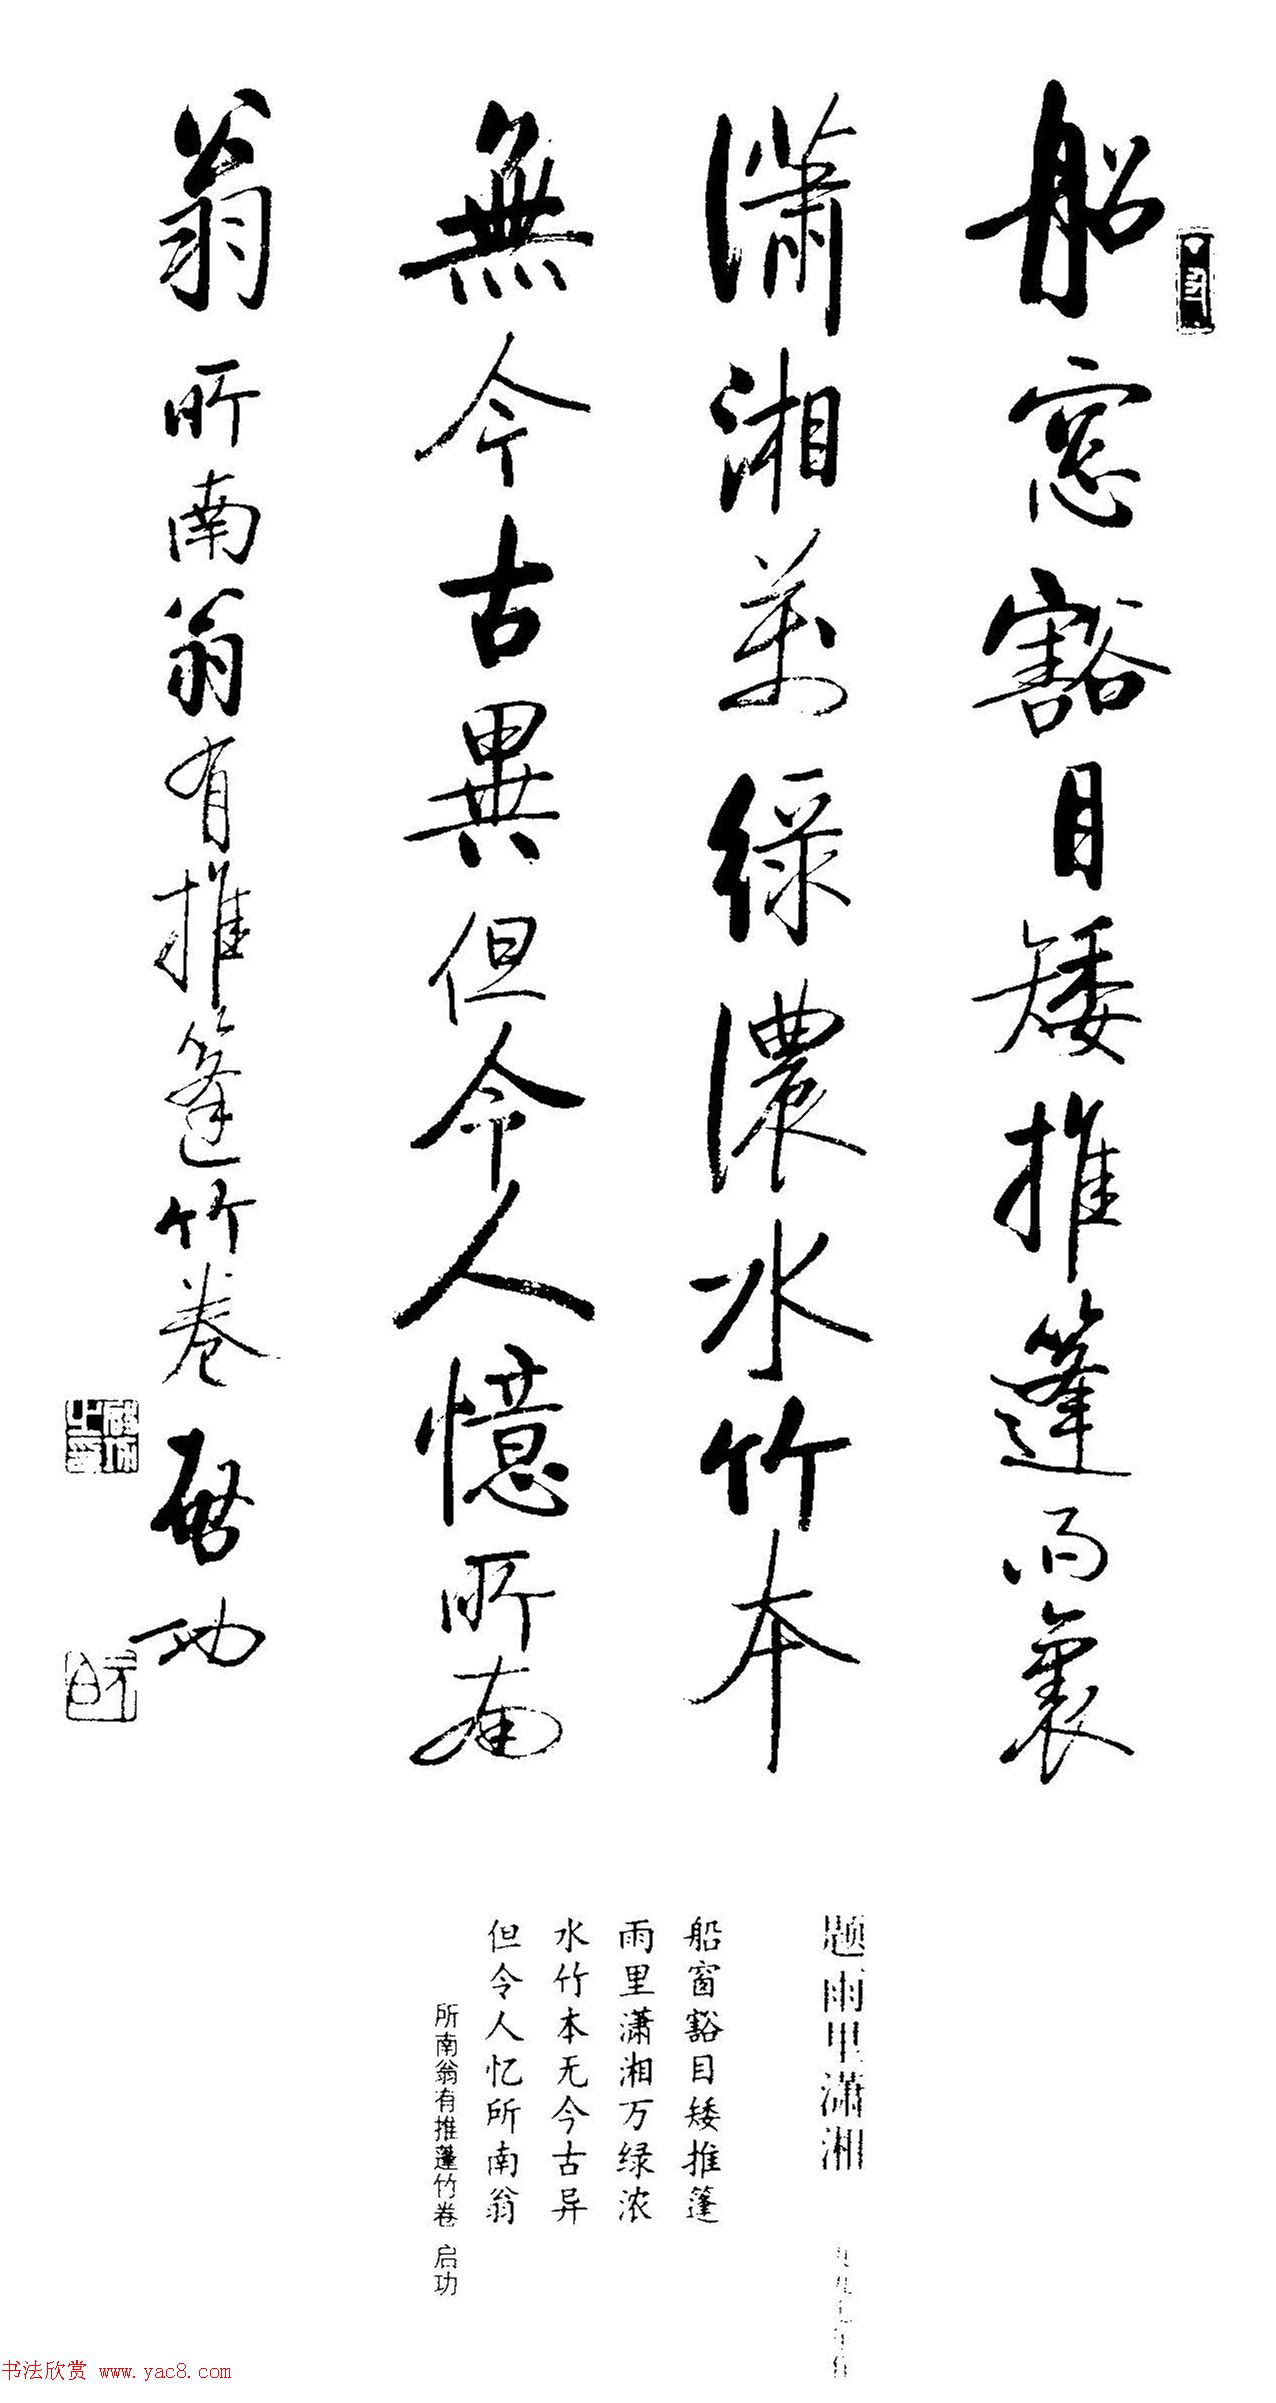 船窓豁目矮推篷雨裏
瀟湘萬緑濃水竹本
無今古異但令人憶所南
翁 所南翁有推篷竹卷 啓功
啓功之印
元白
题雨里潇湘
船窗豁目矮推篷
雨里潇湘万绿浓
水竹本无今古异
但令人忆所南翁
所南翁有推蓬竹卷 启功
书法欣赏 www.yac8.com